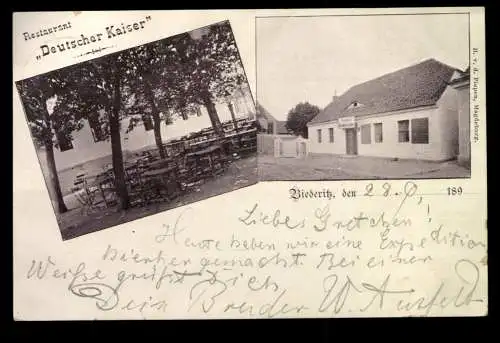 Restaurant
„Deutscher Kaiser"
R. v. d. Piepen, Magdeburg.
Biederitz, den 28. 189
Liebes Gretchen!
Heute haben wir eine Expedition
Bierher gemacht. Bei einer
Weiße grüßt Dich
Dein Bruder W. Ausfeld